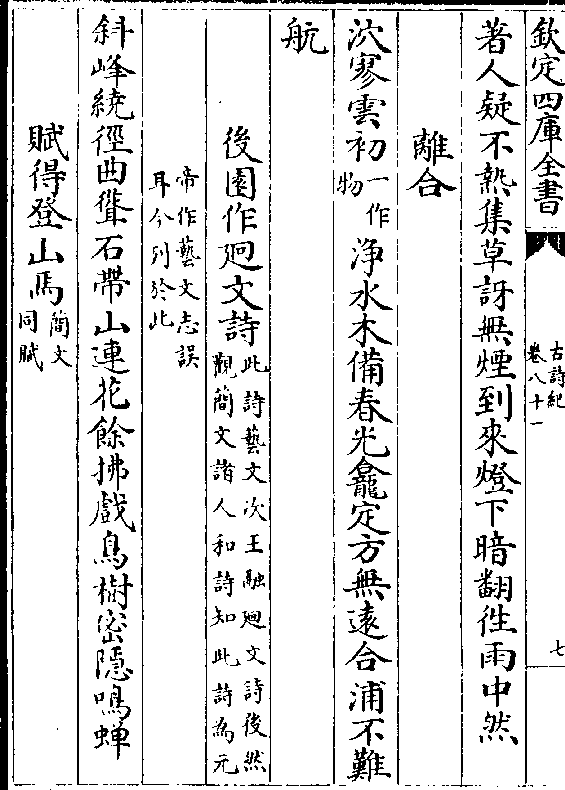 欽定四庫全書
古詩紀
卷八十一
七
著人疑不熱集草訝無煙到來燈下暗翻往雨中然
離合
泬寥雲初一作物淨水木備春光龕定方無遠合浦不難
航
後園作廻文詩此詩藝文次王融廻文詩後然觀簡文諸人和詩知此詩為元
帝作藝文志誤耳今列於此
斜峰繞徑曲聳石帶山連花餘拂戲鳥樹密隱鳴蟬
賦得登山馬簡文同賦